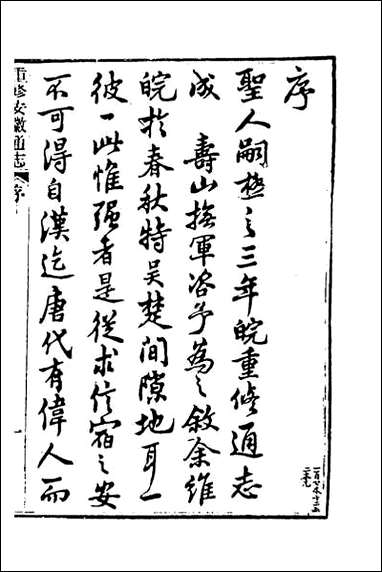 序
聖人嗣極之三年皖重修通志
成　壽山撫軍咨予為之敘余維
皖於春秋特吳楚間隙地耳一
彼一此惟强者是從求信宿之安
不可得自漢迄唐代有偉人而
重修安徽通志　序